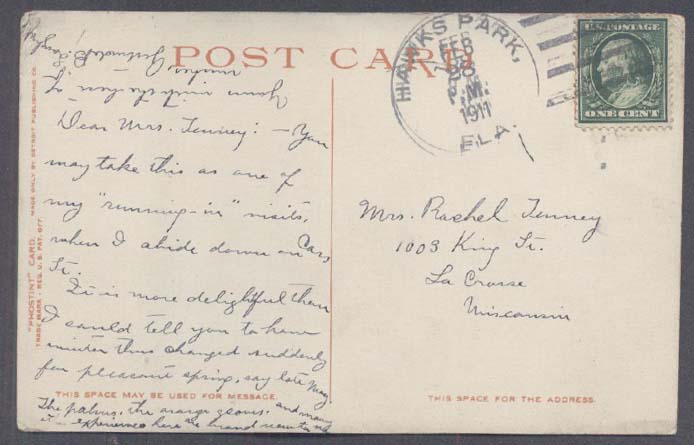 POST CARD
HAWKS PARK,
FEB
28
P.M.
1911
FLA.
U.S. POSTAGE
ONE CENT
Dear Mrs. Tenney: – You
may take this as one of
my "running-in" visits,
when I abide down on Cass
St.
It is more delightful than
I could tell you to have
winter thus changed suddenly
for pleasant spring, say late May.
The palms, the orange groves, and many
experiences here are brand new
Mrs. Rachel Tenney
1003 King St.
La Crosse
Wisconsin
"PHOSTINT" CARD. MADE ONLY BY DETROIT PUBLISHING CO.
TRADE MARK - REG. U.S. PAT. OFF.
THIS SPACE MAY BE USED FOR MESSAGE.
THIS SPACE FOR THE ADDRESS.